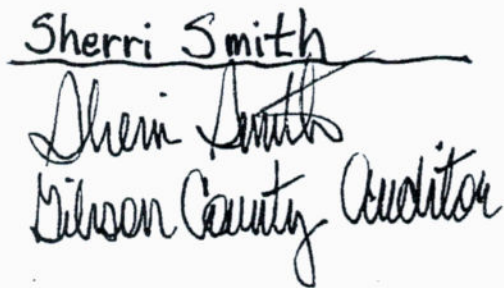 Sherri Smith
Sherri Smith
Gibson County Auditor